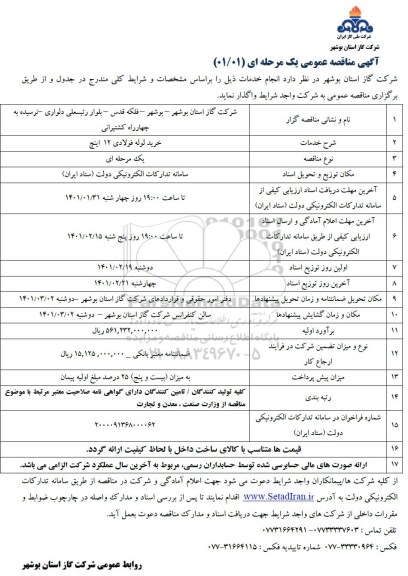 شرکت ملی گاز ایران
شرکت گاز استان بوشهر
آگهی مناقصه عمومی یک مرحله ای (۰۱/۰۱)
شرکت گاز استان بوشهر در نظر دارد انجام خدمات ذیل را براساس مشخصات و شرایط کلی مندرج در جدول و از طریق
برگزاری مناقصه عمومی به شرکت واجد شرایط واگذار نماید.
۱ نام و نشانی مناقصه گزار شرکت گاز استان بوشهر – بوشهر – فلکه قدس – بلوار رئیسعلی دلواری – نرسیده به
چهارراه کشتیرانی
۲ شرح خدمات خرید لوله فولادی ۱۲ اینچ
۳ نوع مناقصه یک مرحله ای
۴ مکان توزیع و تحویل اسناد سامانه تدارکات الکترونیکی دولت (ستاد ایران)
۵ آخرین مهلت دریافت اسناد ارزیابی کیفی از
سامانه تدارکات الکترونیکی دولت (ستاد ایران) تا ساعت ۱۹:۰۰ روز چهار شنبه ۱۴۰۱/۰۱/۳۱
۶ آخرین مهلت اعلام آمادگی و ارسال اسناد
ارزیابی کیفی از طریق سامانه تدارکات
الکترونیکی دولت (ستاد ایران) تا ساعت ۱۹:۰۰ روز پنج شنبه ۱۴۰۱/۰۲/۱۵
۷ اولین روز توزیع اسناد دوشنبه ۱۴۰۱/۰۲/۱۹
۸ آخرین روز توزیع اسناد چهارشنبه ۱۴۰۱/۰۲/۲۱
۹ مکان تحویل ضمانتنامه و زمان تحویل پیشنهادها دفتر امور حقوقی و قراردادهای شرکت گاز استان بوشهر – دوشنبه ۱۴۰۱/۰۳/۰۲
۱۰ مکان و زمان گشایش پیشنهادها سالن کنفرانس شرکت گاز استان بوشهر – دوشنبه ۱۴۰۱/۰۳/۰۲
۱۱ برآورد اولیه ۵۶۱,۲۳۲,۰۰۰,۰۰۰ ریال
۱۲ نوع و میزان تضمین شرکت در فرایند
ارجاع کار ضمانتنامه معتبر بانکی _ ۱۵,۱۲۵,۰۰۰,۰۰۰ ریال
۱۳ میزان پیش پرداخت به میزان (بیست و پنج) ۲۵ درصد مبلغ اولیه پیمان
۱۴ رتبه بندی کلیه تولید کنندگان / تامین کنندگان دارای گواهی نامه صلاحیت معتبر مرتبط با موضوع
مناقصه از وزارت صنعت ، معدن و تجارت
۱۵ شماره فراخوان در سامانه تدارکات الکترونیکی
دولت (ستاد ایران) ۲۰۰۰۰۹۱۳۶۸۰۰۰۰۶۲
۱۶ قیمت ها متناسب با کالای ساخت داخل با لحاظ کیفیت ارائه گردد.
۱۷ ارائه صورت های مالی حسابرسی شده توسط حسابداران رسمی، مربوط به آخرین سال عملکرد شرکت الزامی می باشد.
از کلیه شرکت ها/پیمانکاران واجد شرایط دعوت می شود جهت اعلام آمادگی و شرکت در مناقصه از طریق سامانه تدارکات
الکترونیکی دولت به آدرس www.SetadIran.ir اقدام نمایند تا پس از بررسی اسناد و مدارک واصله در چارچوب ضوابط و
مقررات داخلی از شرکت های واجد شرایط جهت دریافت اسناد و مدارک مناقصه دعوت بعمل آید.
تلفن تماس : ۰۷۷۳۳۳۳۷۶۰۳ - ۰۷۷۳۱۶۶۴۲۹۱
فکس : ۳۳۳۳۰۹۶۴-۰۷۷ شماره تاییدیه فکس : ۳۱۶۶۴۱۱۵-۰۷۷
روابط عمومی شرکت گاز استان بوشهر